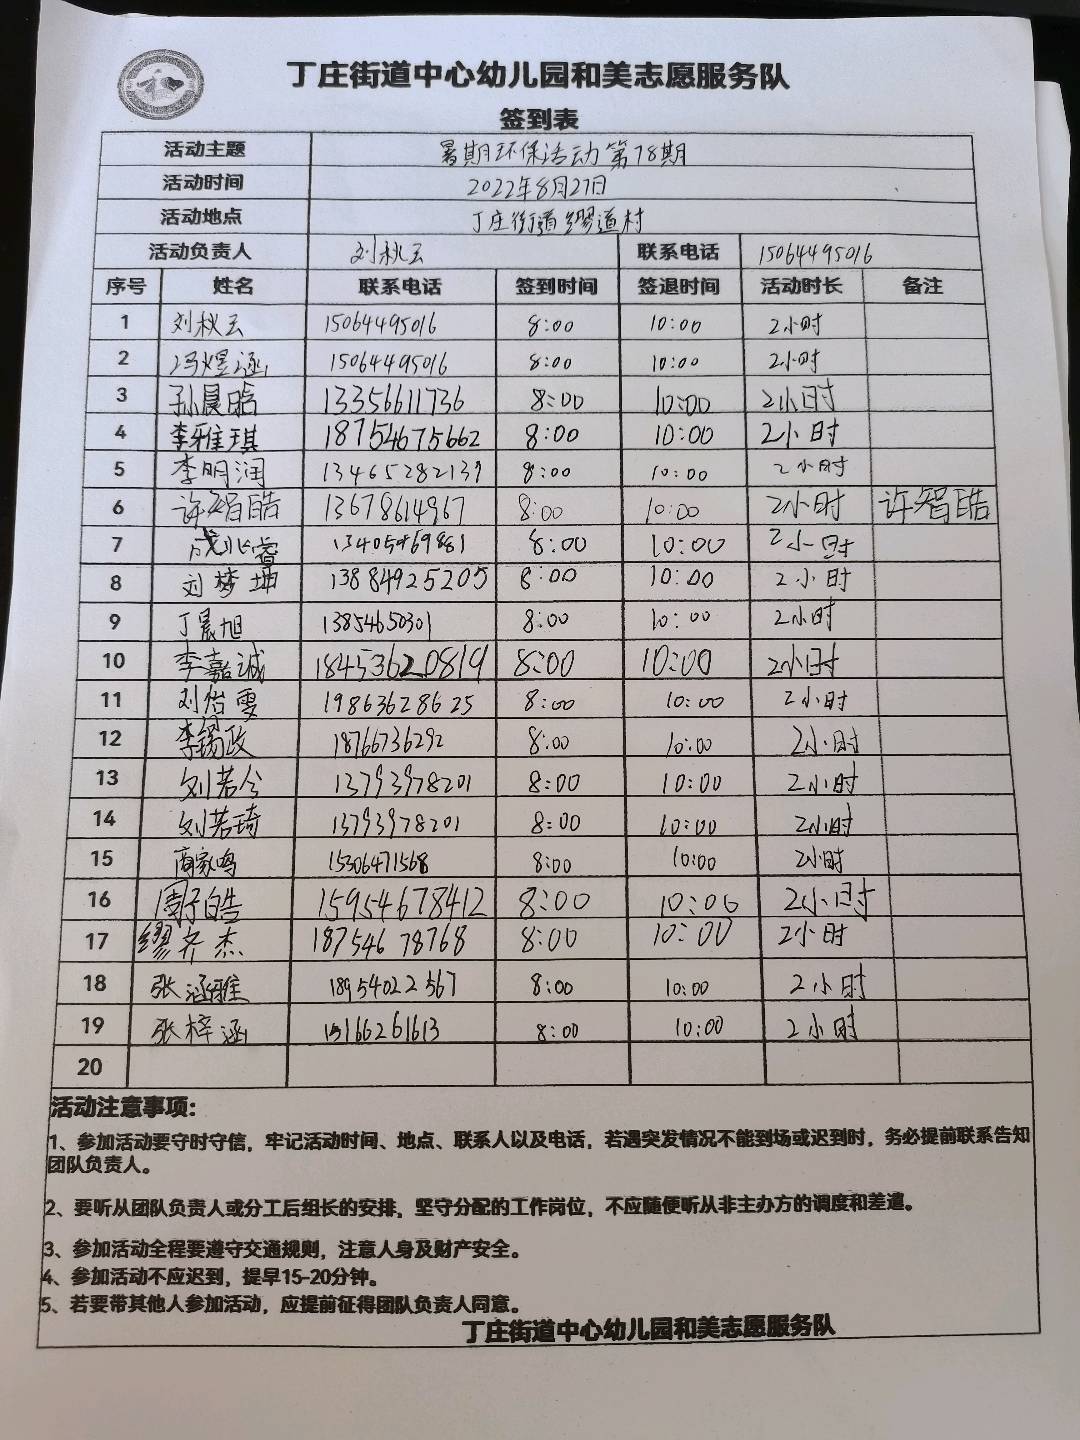 和
丁庄街道中心幼儿园和美志愿服务队
签到表
活动主题 暑期环保活动第78期
活动时间 2022年8月27日
活动地点 丁庄街道缪道村
活动负责人 刘秋云 联系电话 15064495016
序号 姓名 联系电话 签到时间 签退时间 活动时长 备注
1 刘秋云 15064495016 8:00 10:00 2小时
2 冯煜涵 15064495016 8:00 10:00 2小时
3 孙晨晗 13356611736 8:00 10:00 2小时
4 李雅琪 18754675662 8:00 10:00 2小时
5 李明润 13465282139 8:00 10:00 2小时
6 许智皓 13678614967 8:00 10:00 2小时 许智皓
7 8:00 10:00 2小时
8 刘梦坤 13884925205 8:00 10:00 2小时
9 丁晨旭 13854650301 8:00 10:00 2小时
10 李嘉诚 18453620819 8:00 10:00 2小时
11 刘怡雯 19863628625 8:00 10:00 2小时
12 李锡政 18766736292 8:00 10:00 2小时
13 刘若兮 13793978201 8:00 10:00 2小时
14 刘若琦 13793978201 8:00 10:00 2小时
15 商家鸣 15306471568 8:00 10:00 2小时
16 周子皓 15954678412 8:00 10:00 2小时
17 缪齐杰 18754678768 8:00 10:00 2小时
18 张涵雅 18954022567 8:00 10:00 2小时
19 张梓涵 15166261613 8:00 10:00 2小时
20
活动注意事项:
1、参加活动要守时守信，牢记活动时间、地点、联系人以及电话，若遇突发情况不能到场或迟到时，务必提前联系告知
团队负责人。
2、要听从团队负责人或分工后组长的安排，坚守分配的工作岗位，不应随便听从非主办方的调度和差遣。
3、参加活动全程要遵守交通规则，注意人身及财产安全。
4、参加活动不应迟到，提早15-20分钟。
5、若要带其他人参加活动，应提前征得团队负责人同意。
丁庄街道中心幼儿园和美志愿服务队